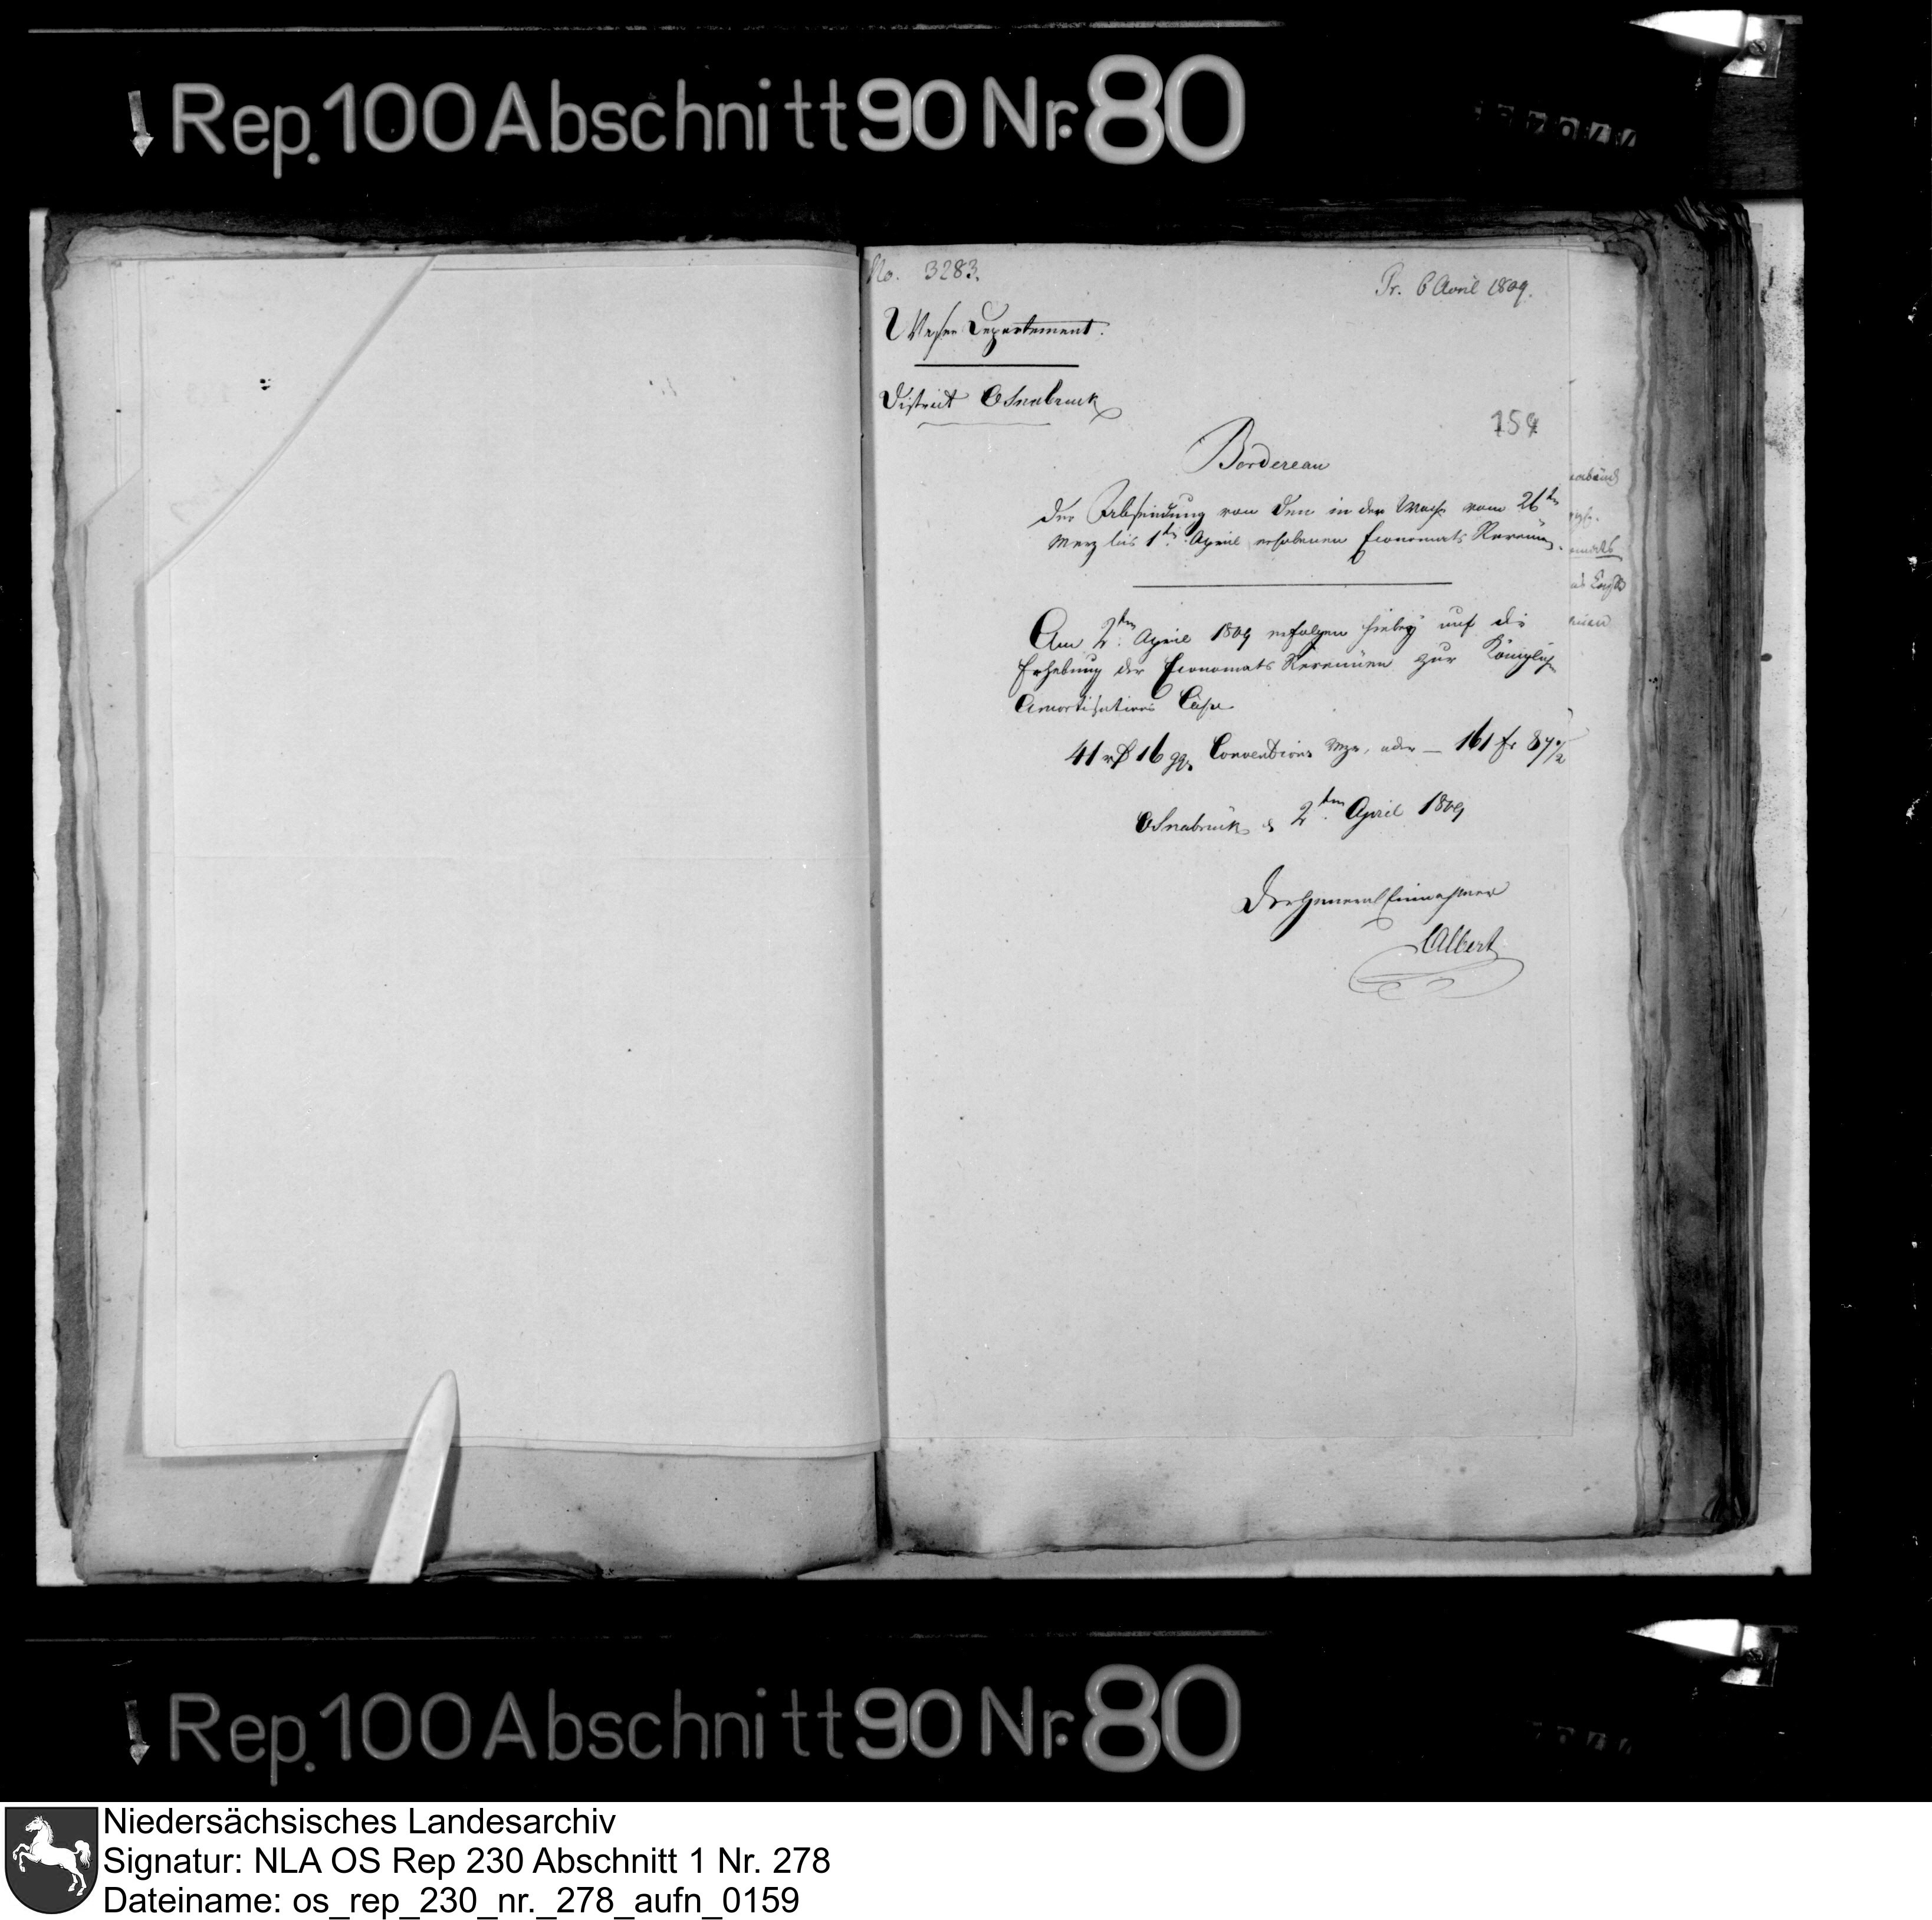 Rep. 100 Abschnitt 90 Nr. 80
No. 3283.
Pr. 6 Avril 1809.
Weser Departement.
District Osnabruck
159
Bordereau
der Absendung von den in der Woche vom 26ten
Merz bis 1ten April erhobenen Economats Revenüen.
Am 2ten April 1809 erfolgen hiebey auf die
Erhebung der Economats Revenüen zur Königlichen
Amortisations Casse
41 rß 16 ggr Conventions Mze, oder — 161 fr 87 1/2
Osnabrück d 2ten April 1809
Der General Einnehmer
Albert
Rep. 100 Abschnitt 90 Nr. 80
Niedersächsisches Landesarchiv
Signatur: NLA OS Rep 230 Abschnitt 1 Nr. 278
Dateiname: os_rep_230_nr._278_aufn_0159